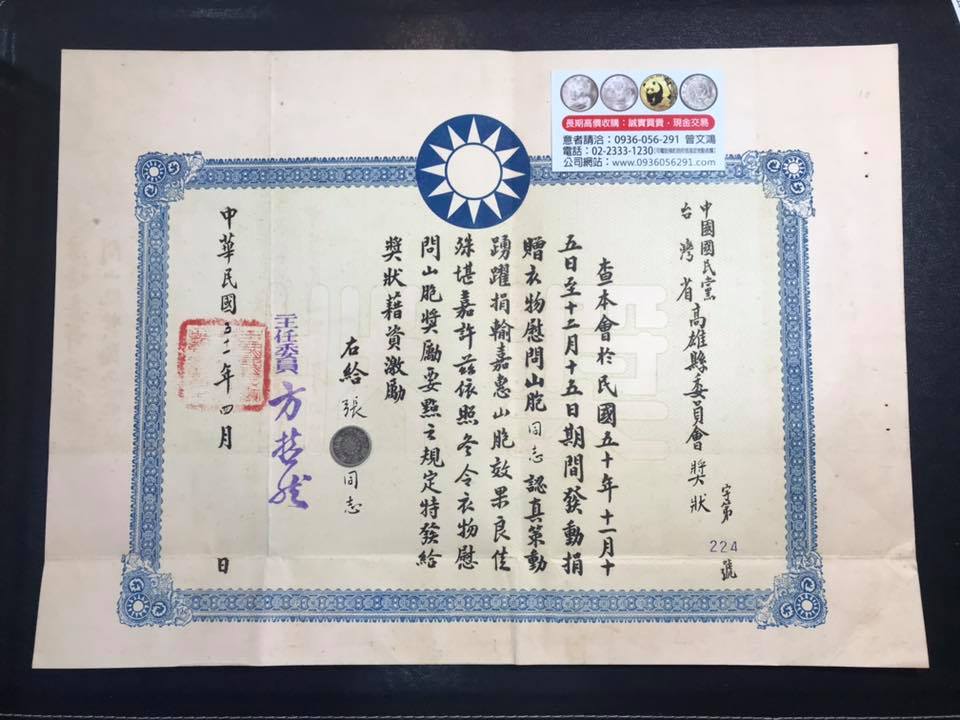 長期高價收購：誠實買賣，現金交易
意者請洽：0936-056-291 曾文鴻
電話：02-2333-1230
公司網站：www.0936056291.com
中國國民黨
台灣省高雄縣委員會獎狀
字第224號
查本會於民國五十年十一月十
五日至十二月十五日期間發動捐
贈衣物慰問山胞同志認真策動
踴躍捐輸嘉惠山胞效果良佳
殊堪嘉許茲依照冬令衣物慰
問山胞獎勵要點之規定特發給
獎狀藉資激勵
右給張同志
主任委員方
中華民國五十一年四月 日